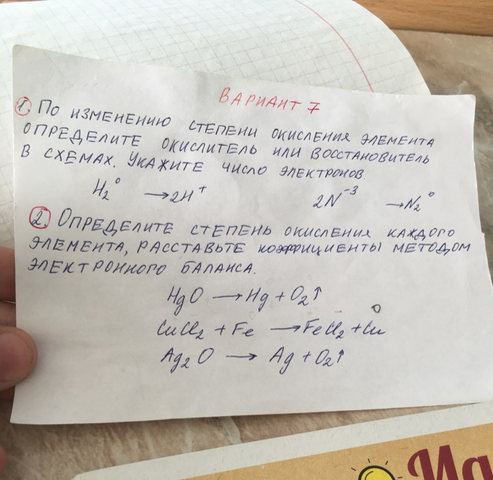 ВАРИАНТ 7
1. ПО ИЗМЕНЕНИЮ СТЕПЕНИ ОКИСЛЕНИЯ ЭЛЕМЕНТА
ОПРЕДЕЛИТЕ ОКИСЛИТЕЛЬ ИЛИ ВОССТАНОВИТЕЛЬ
В СХЕМАХ. УКАЖИТЕ ЧИСЛО ЭЛЕКТРОНОВ
H₂⁰ → 2H⁺ 2N⁻³ → N₂⁰
2. ОПРЕДЕЛИТЕ СТЕПЕНЬ ОКИСЛЕНИЯ КАЖДОГО
ЭЛЕМЕНТА, РАССТАВЬТЕ КОЭФФИЦИЕНТЫ МЕТОДОМ
ЭЛЕКТРОННОГО БАЛАНСА.
HgO → Hg + O₂↑
CuCl₂ + Fe → FeCl₂ + Cu⁰
Ag₂O → Ag + O₂↑